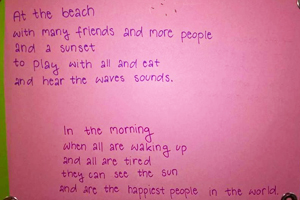 At the beach
with many friends and more people
and a sunset
to play with all and eat
and hear the waves sounds.
In the morning
when all are waking up
and all are tired
they can see the sun
and are the happiest people in the world.